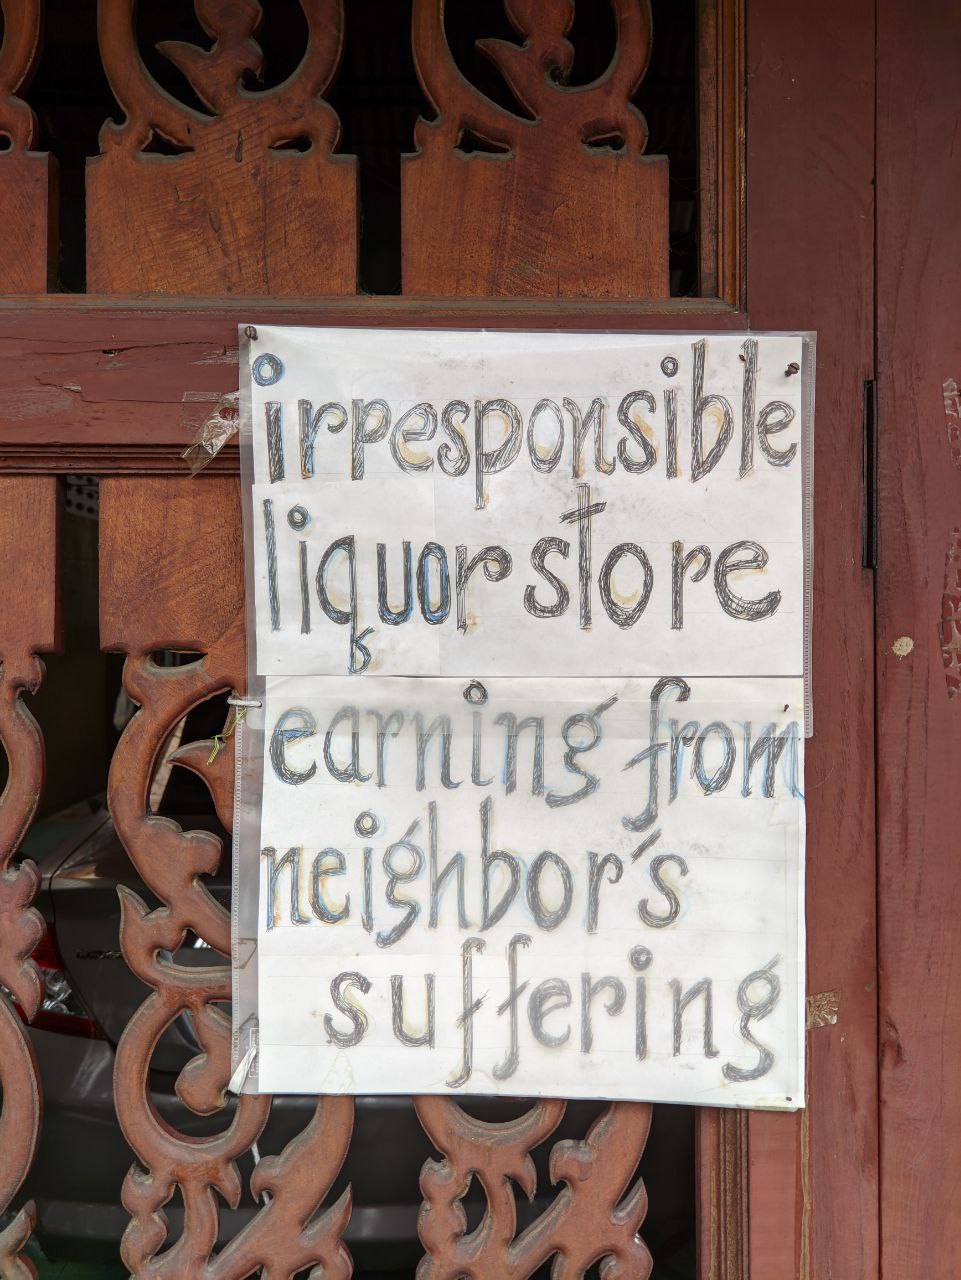 irresponsible
liquor store
earning from
neighbor's
suffering